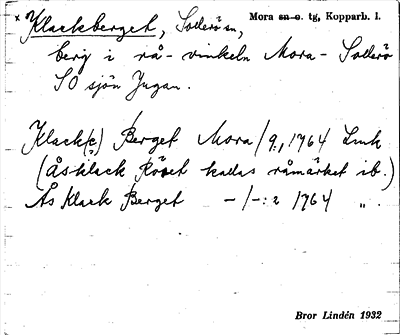 x Klackberget, Sollerö sn, Mora sn o. tg, Kopparb. l.
berg i rå-vinkeln Mora-Sollerö
SO sjön Jugan.
Klack(e) Berget Mora/9:, 1764 Lmk
(Åsklack Röset kallas råmärket ib.)
Ås Klack Berget -/-: 2 1764 "
Bror Lindén 1932